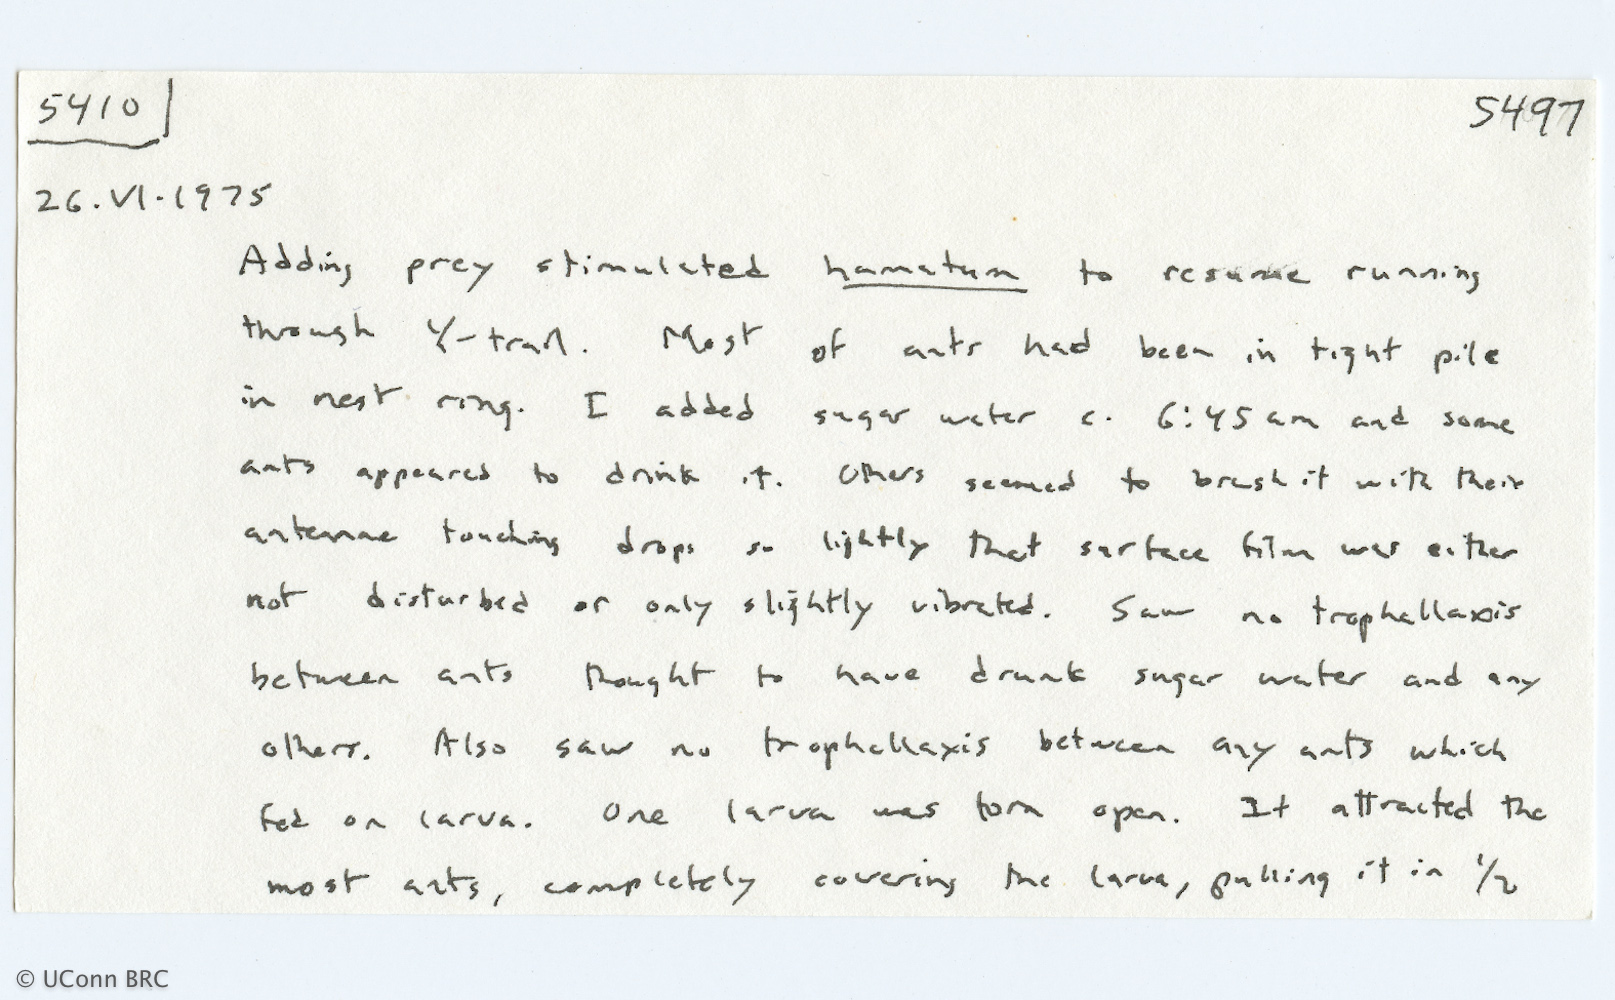 5410
5497
26.VI.1975
Adding prey stimulated hamatum to resume running
through Y-trail. Most of ants had been in tight pile
in nest ring. I added sugar water c. 6:45 am and some
ants appeared to drink it. Others seemed to brush it with their
antennae touching drops so lightly that surface film was either
not disturbed or only slightly vibrated. Saw no trophallaxis
between ants thought to have drunk sugar water and any
others. Also saw no trophallaxis between any ants which
fed on larva. One larva was torn open. It attracted the
most ants, completely covering the larva, pulling it in 1/2
© UConn BRC